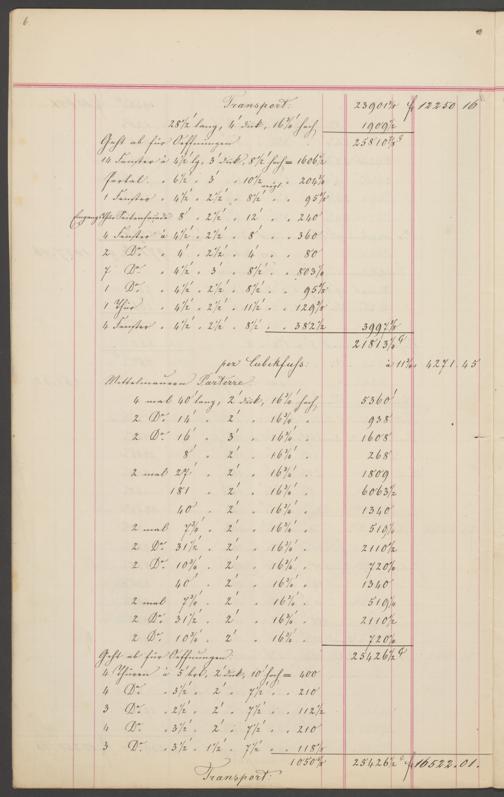 6.
Transport: 23901 f 12250 16
28½' lang, 4' dick, 16¾' hoch, 1909½
Geht ab für Oeffnungen 25810
14 Fenster à 4½' lg, 3' dick, 8½' hoch = 1606½
Portal. " 6½' " 3' " 10½' " 204¾
1 Fenster " 4½' " 2½' " 8½' " " 95⅝
Thür Seitenfaçade 8' " 2½' " 12' " " 240'
4 Fenster à 4½' " 2½' " 8' " " 360
2 Do. " 4' " 2½' " 4' " " 80
7 Do. " 4½' " 3' " 8½' " " 803¼
1 Do. " 4½' " 2½' " 8½' " " 95⅝
1 Thür " 4½' " 2½' " 11½' " " 129⅜
4 Fenster " 4½' " 2½' " 8½' " " 382½ 3997
21813
per Cubikfuss: 4271.45
Mittelmauern Parterre
4 mal 40' lang, 2' dick, 16¾' hoch, 5360'
2 Do. 14' " 2' " 16¾' " 938
2 Do. 16' " 3' " 16¾' " 1608
8' " 2' " 16¾' " 268
2 mal 27' " 2' " 16¾' " 1809
181 " 2' " 16¾' " 6063½
40' " 2' " 16¾' " 1340
2 mal 7¾' " 2' " 16¾' " 519¼
2 Do. 31½' " 2' " 16¾' " 2110½
2 Do. 10¾' " 2' " 16¾' " 720¼
40' " 2' " 16¾' " 1340
2 mal 7¾' " 2' " 16¾' " 519¼
2 Do. 31½' " 2' " 16¾' " 2110½
2 Do. 10¾' " 2' " 16¾' " 720¼
Geht ab für Oeffnungen. 25426½
4 Thüren à 5' brt, 2' dick, 10' hoch = 400
4 Do. " 3½' " 2' " 7½' " " 210
3 Do. " 2½' " 2' " 7½' " " 112½
4 Do. " 3½' " 2' " 7½' " " 210
3 Do. " 3½' " 1½' " 7½' " " 118⅛
1050⅝ 25426½ f 16522.01.
Transport: